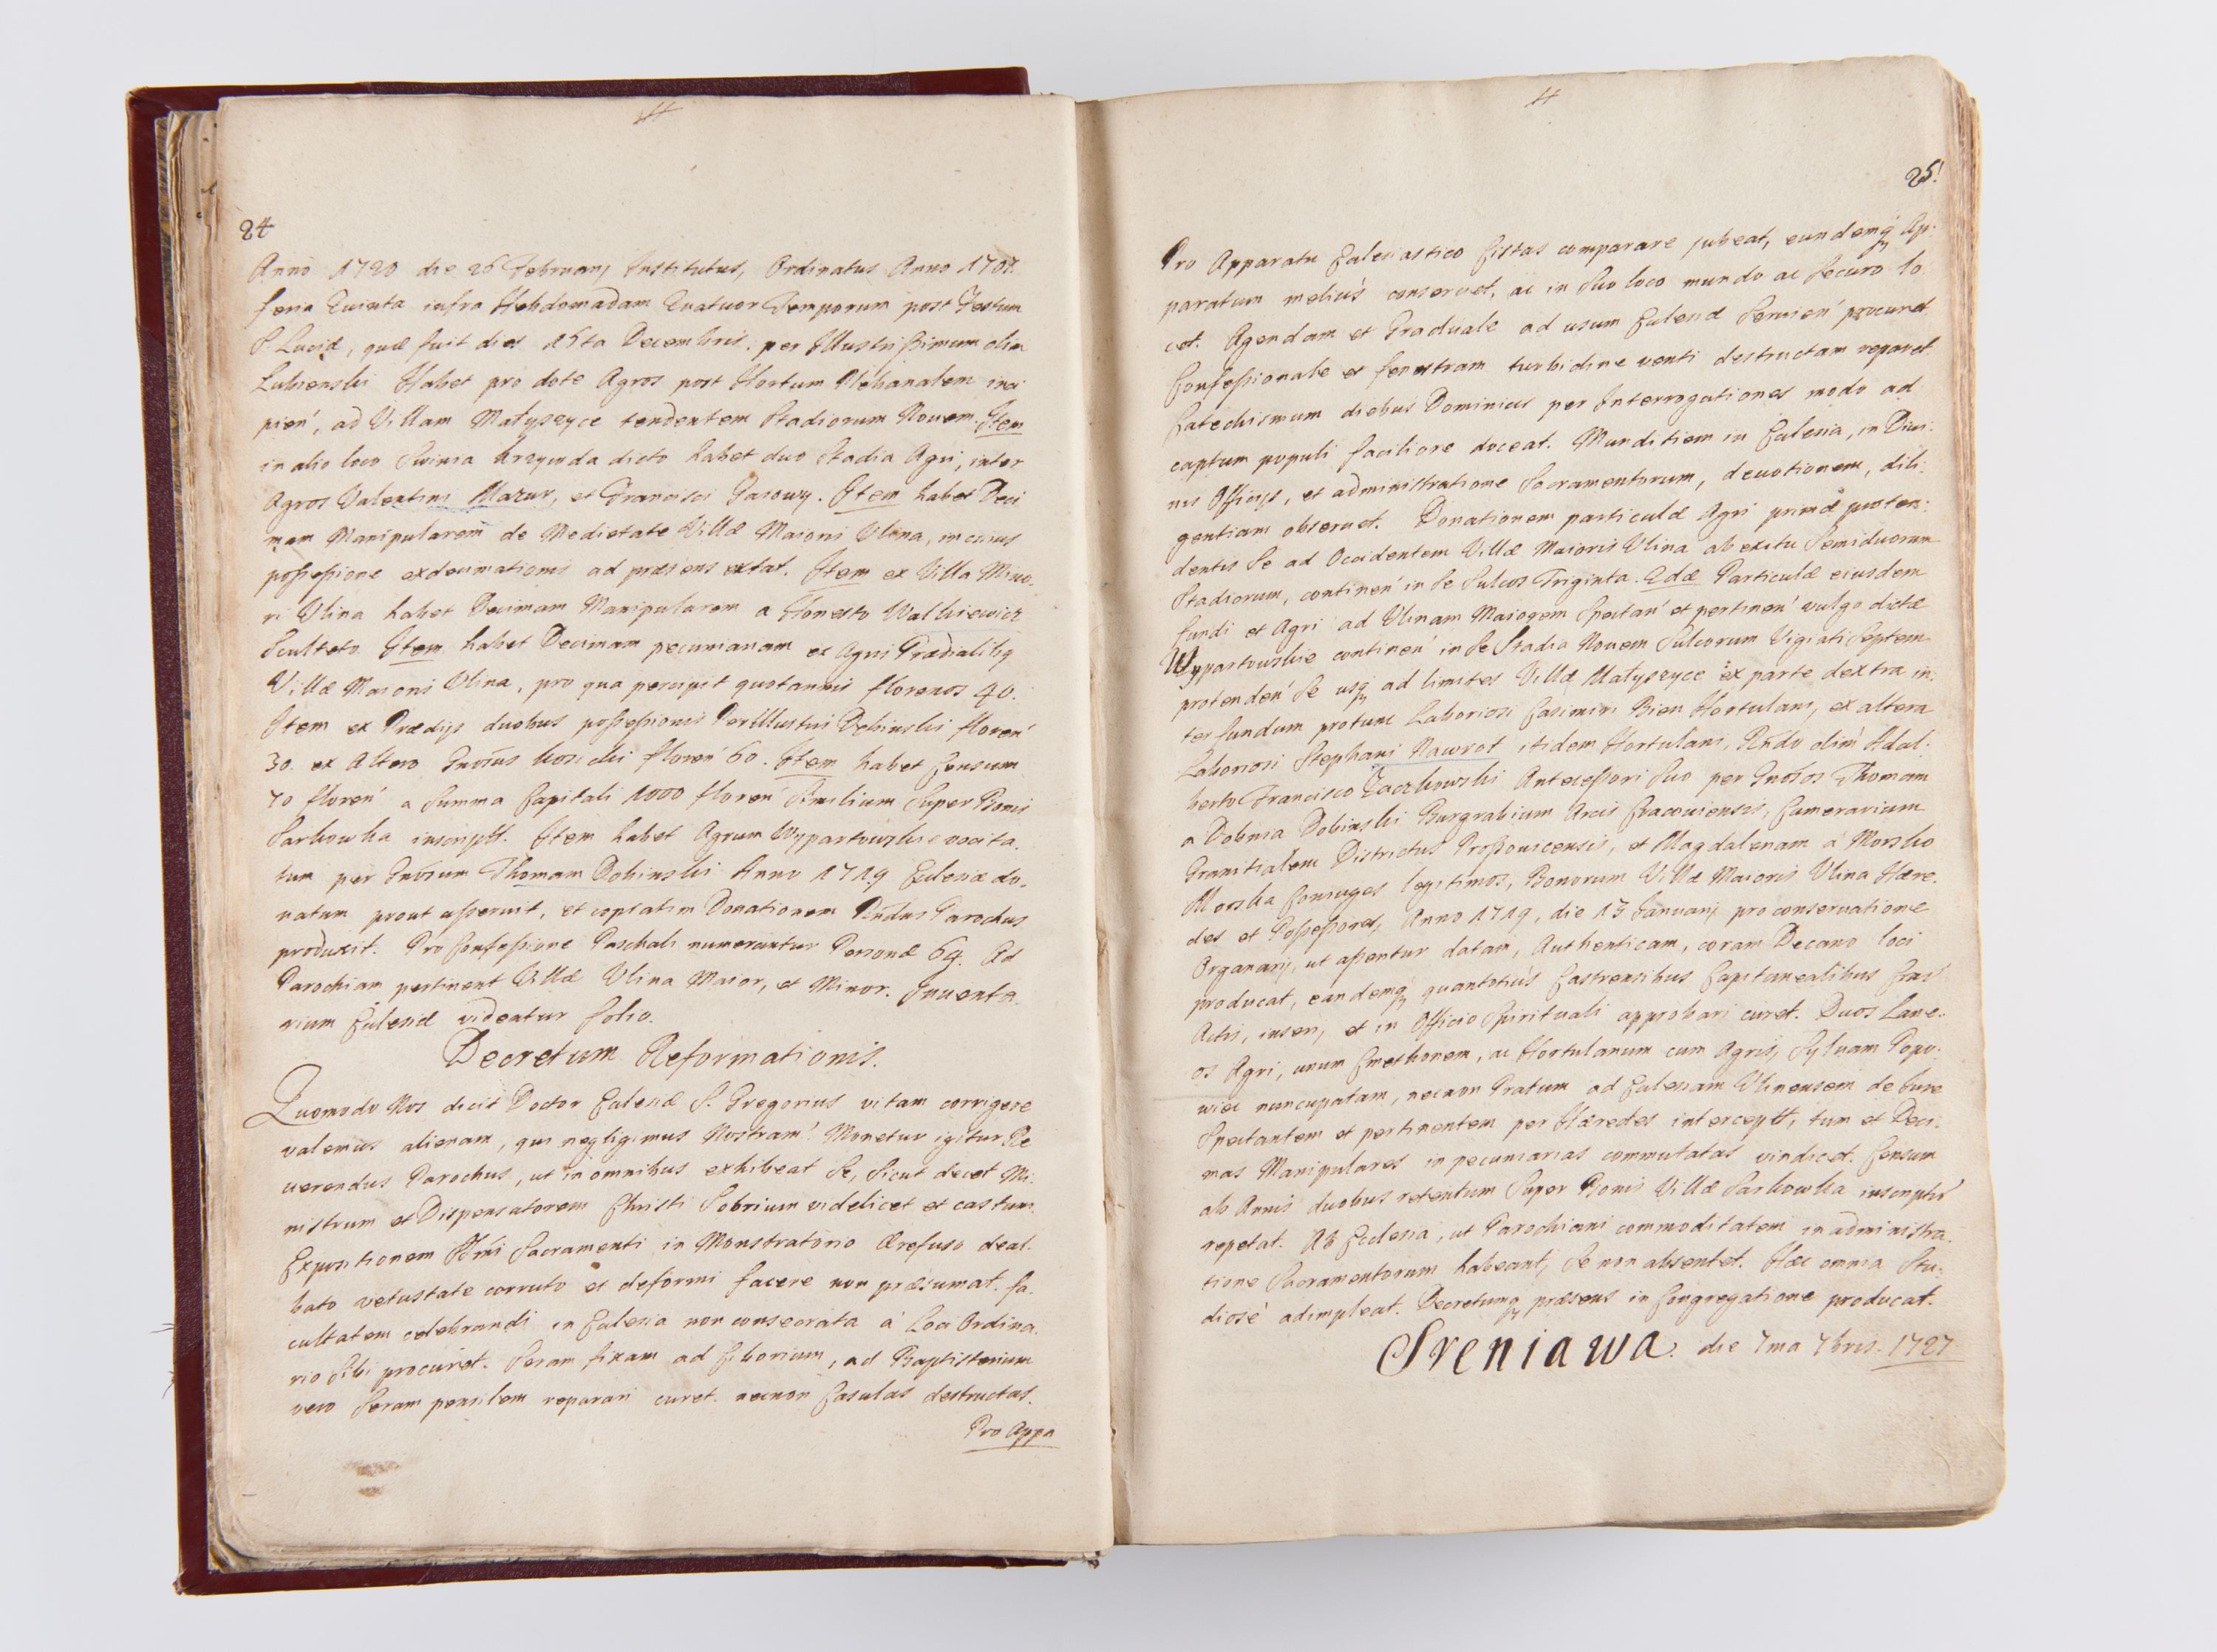 24
Anno 1720 die 26 Februarij Institutus, Ordinatus Anno 1707.
feria Quinta infra Hebdomadam Quatuor Temporum post Festum
S. Luciæ, quæ fuit dies 15ta Decembris. per Illustrißimum olim
Lubienski Habet pro dote Agros post Hortum Plebanalem inci
pien', ad Villam Małyszyce tendentem Stadiorum Novem. Item
in alio loco Swinia krzywda dicto habet duo Stadia Agri, inter
Agros Valentini Mazur, et Francisci Gasowy. Item habet Deci
mam Manipularem de Medietate Villæ Maioris Ulina, in cuius
poßeßione exdecimationis ad præsens extat. Item ex Villa Mino-
ri Ulina habet Decimam Manipularem a Honesto Walkiewicz
Sculteto. Item habet Decimam pecuniariam ex Agris Prædialibq
Villæ Maioris Ulina, pro qua percipit quotannis florenos 40.
Item ex Prædijs duobus poßeßionis Perillustris Dębinski floren'
30. ex altero Gnosus Kosicki floren' 60. Item habet Censum
70 floren' a Summa Capitali 1000 floren' Similium Super Bonis
Sarkowka inscriptt. Item habet Agrum Wypartowskie vocita.
tum per Gnosum Thomam Dobinski Anno 1719 Eclesiæ do.
natum prout aßeruit, et copiatim Donationem Rndus Parochus
produxit. Pro Confeßione Paschali numerantur Personæ 69. Ad
Parochiam pertinent Villæ Ulina Maior, et Minor. Inventa.
rium Eclesiæ videatur folio.
Decretum Reformationis.
Quomodo Nos dicit Doctor Eclesiæ S. Gregorius vitam corrigere
valemus alienam, qui negligimus Nostram! Monetur igitur Re
verendus Parochus, ut in omnibus exhibeat Se, Sicut decet Mi.
nistrum et Dispensatorem Christi Sobrium videlicet et castum.
Expositionem SSmi Sacramenti in Monstratorio Ærefuso deal.
bato vetustate corruto et deformi facere non præsumat. fa.
cultatem celebrandi in Eclesia non consecrata à Loci Ordina.
rio Sibi procuret. Seram fixam ad Ciborium, ad Baptisterium
vero Seram pensilem reparari curet. necnon Casulas destructas.
Pro Appa
25.
Pro Apparatu Eclesiastico Cistas comparare jubeat, eundemq Ap:
paratum meliùs conservet, ac in Suo loco mundo ac Securo lo
cet. Agendam et Graduale ad usum Eclesiæ Servien' procuret.
Confeßionale et fenestram turbidine venti destructam reparet.
Catechismum diebus Dominicis per Interrogationes modo ad
captum populi faciliore doceat. Munditiem in Eclesia, in Divi:
nis Officijs, et administratione Sacramentorum, devotionem, dili:
gentiam observet. Donationem particulæ Agri primæ proten:
dentis Se ad Occidentem Villæ Maioris Ulina ab exitu Semiduorum
Stadiorum, continen' in Se Sulcos Triginta. 2dæ Particulæ eiusdem
fundi et Agri ad Ulinam Maiorem Spectan' et pertinen' vulgo dictæ
Wypartowskie continen' in Se Stadia Novem Sulcorum Viginti Septem
protenden' Se usq ad limites Villæ Małyszyce ex parte dextra in:
ter fundum protunc Laboriosi Casimiri Bien Hortulani, ex altera
Laboriosi Stephani Nawrot itidem Hortulani, Rndo olim Adal.
berto Francisco Zaczkowski Anteceßori Suo per Gnosos Thomam
a Dobnia Dobinski Burgrabium Arcis Cracoviensis, Camerarium
Granitialem Districtus Proßovicensis, et Magdalenam à Morsko
Morska Coniuges legitimos, Bonorum Villæ Maioris Ulina Hære.
des et Poßeßores, Anno 1719, die 13 Januarij pro conservatione
Organarij, ut aßentur datam, Authenticam, coram Decano loci
producat, eandemq quantotiùs Castrensibus Capitanealibus Crac'
Actis, inseri, et in Officio Spirituali approbari curet. Duos Lane.
os Agri, unum Cmethonem, ac Hortulanum cum Agris, Sylvam Popo.
wiec nuncupatam, necnon Pratum ad Eclesiam Ulinensem de Iure
Spectantem et pertinentem per Hæredes interceptt, tum et Deci.
mas Manipulares in pecuniarias commutatas vindicet. Censum
ab Annis duobus retentum Super Bonis Villæ Sarkowka inscriptū
repetat. Ab Eclesia, ut Parochiani commoditatem in administra.
tione Sacramentorum habeant, Se non absentet. Hæc omnia Stu:
diosè adimpleat. Decretumq præsens in Congregatione producat.
Sreniawa. die 7ma 7bris. 1727